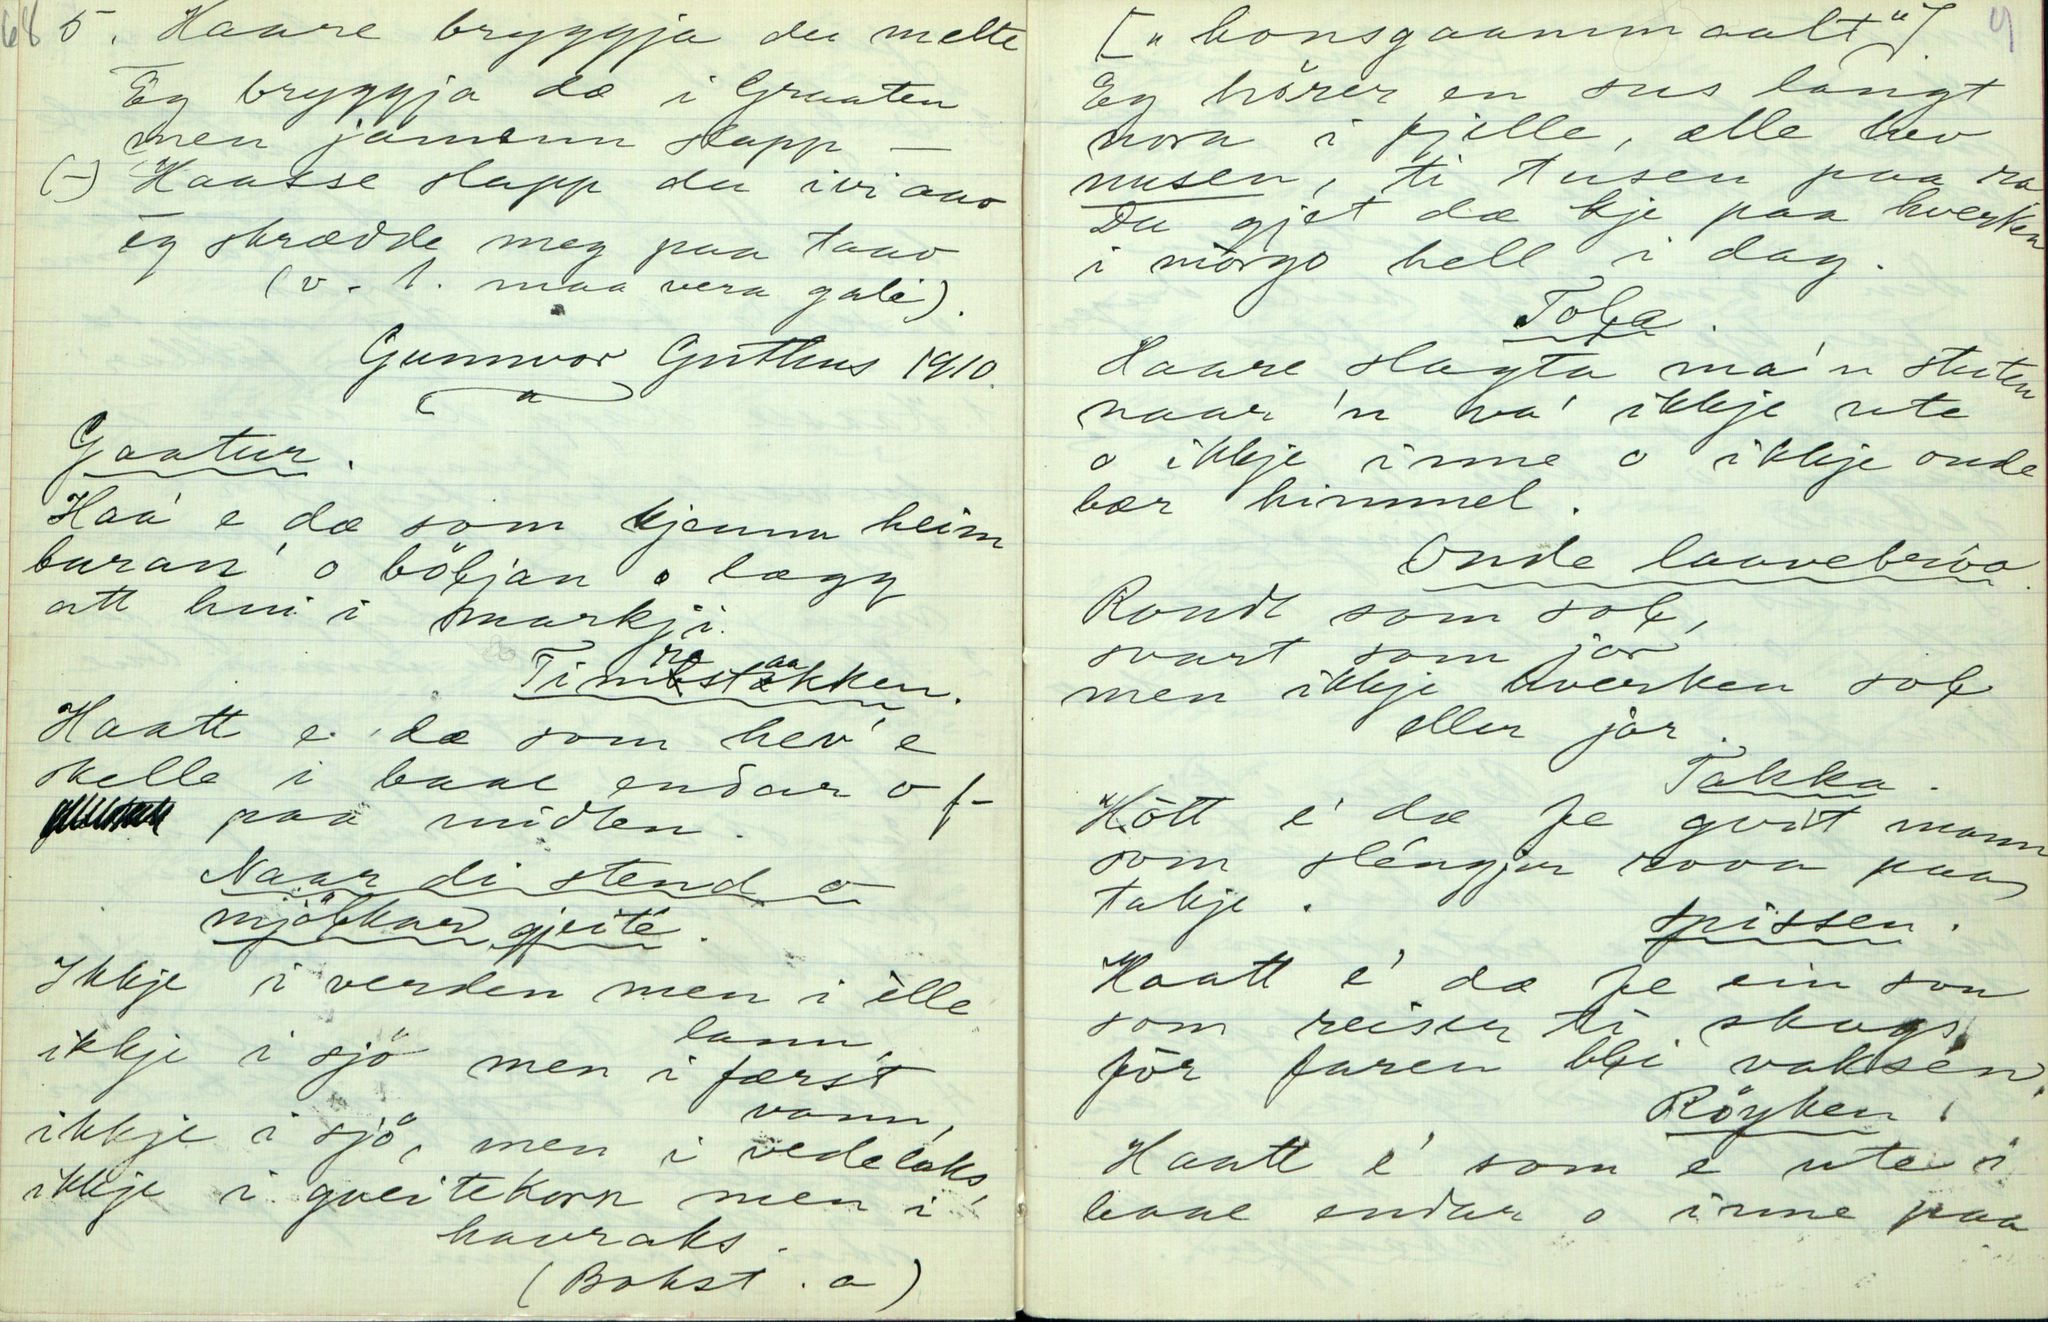 68 5. Haare bryggja du melte
Eg bryggja dæ i Graaten
men jamenn slapp —
(-) Haasse slapp du iviaav
Eg skrædde meg paa taav
(v. l. maa vera gale).
Gunnvor Guthus 1910.
Gaatur.
Haa' e dæ som kjemn heim
buran' o böljan o lægg
att hui i markji.
Timrastaakken.
Haatt e dæ som hev' e
skelle i baae endar o f-
paa midten.
Naar di stend o
mjölkar gjeite.
Ikkje i verden men i elle
lann,
ikkje i sjö men i færst
vann,
ikkje i sjö, men i vedelaks,
ikkje i gveitekorn men i
havraks.
(Bokst. a)
9
["honsgaammaalt"]
Eg hörer en sus langt
nora i fjelle, alle hev
nusen, ti tusen paa ra
Du gjet dæ kje paa hverken
i mörgo hell i dag.
Tola.
Haare slagta ma'n stuten
naar 'n va' ikkje ute
o ikkje inne o ikkje onde
bær himmel.
Onde laavebrua.
Rondt som sol,
svart som jor
men ikkje hverken sol
eller jor.
Takka.
Hött e' dæ fe gvit mann
som slengjer rova paa
takje.
spissen.
Haatt e' dæ fe ein son
som reiser ti skogs
för faren bli vaksen.
Röyken.
Haatt e' som e ute i
baae endar o inne paa